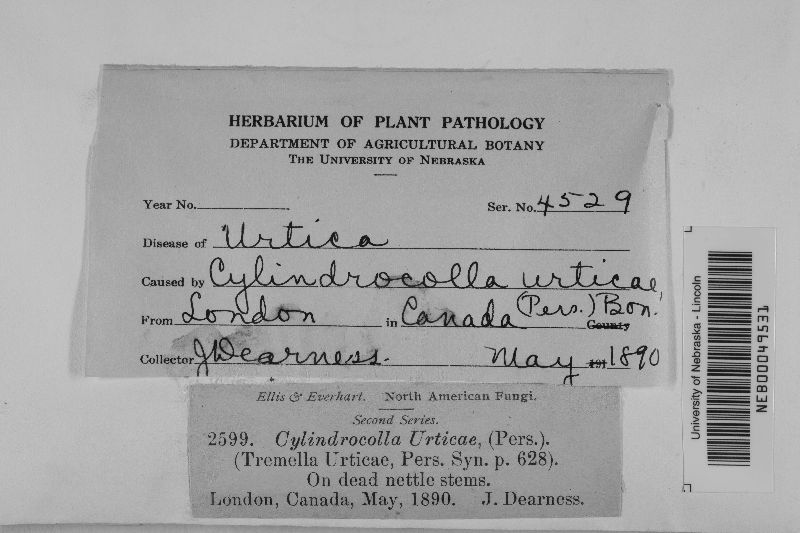 HERBARIUM OF PLANT PATHOLOGY
DEPARTMENT OF AGRICULTURAL BOTANY
THE UNIVERSITY OF NEBRASKA
Year No.
Ser. No. 4529
Disease of Urtica
Caused by Cylindrocolla urticae
(Pers.) Bon.
From London in Canada County
Collector J Dearness. May 191 1890
Ellis & Everhart. North American Fungi.
Second Series.
2599. Cylindrocolla Urticae, (Pers.).
(Tremella Urticae, Pers. Syn. p. 628).
On dead nettle stems.
London, Canada, May, 1890. J. Dearness.
University of Nebraska - Lincoln
NEB00049531